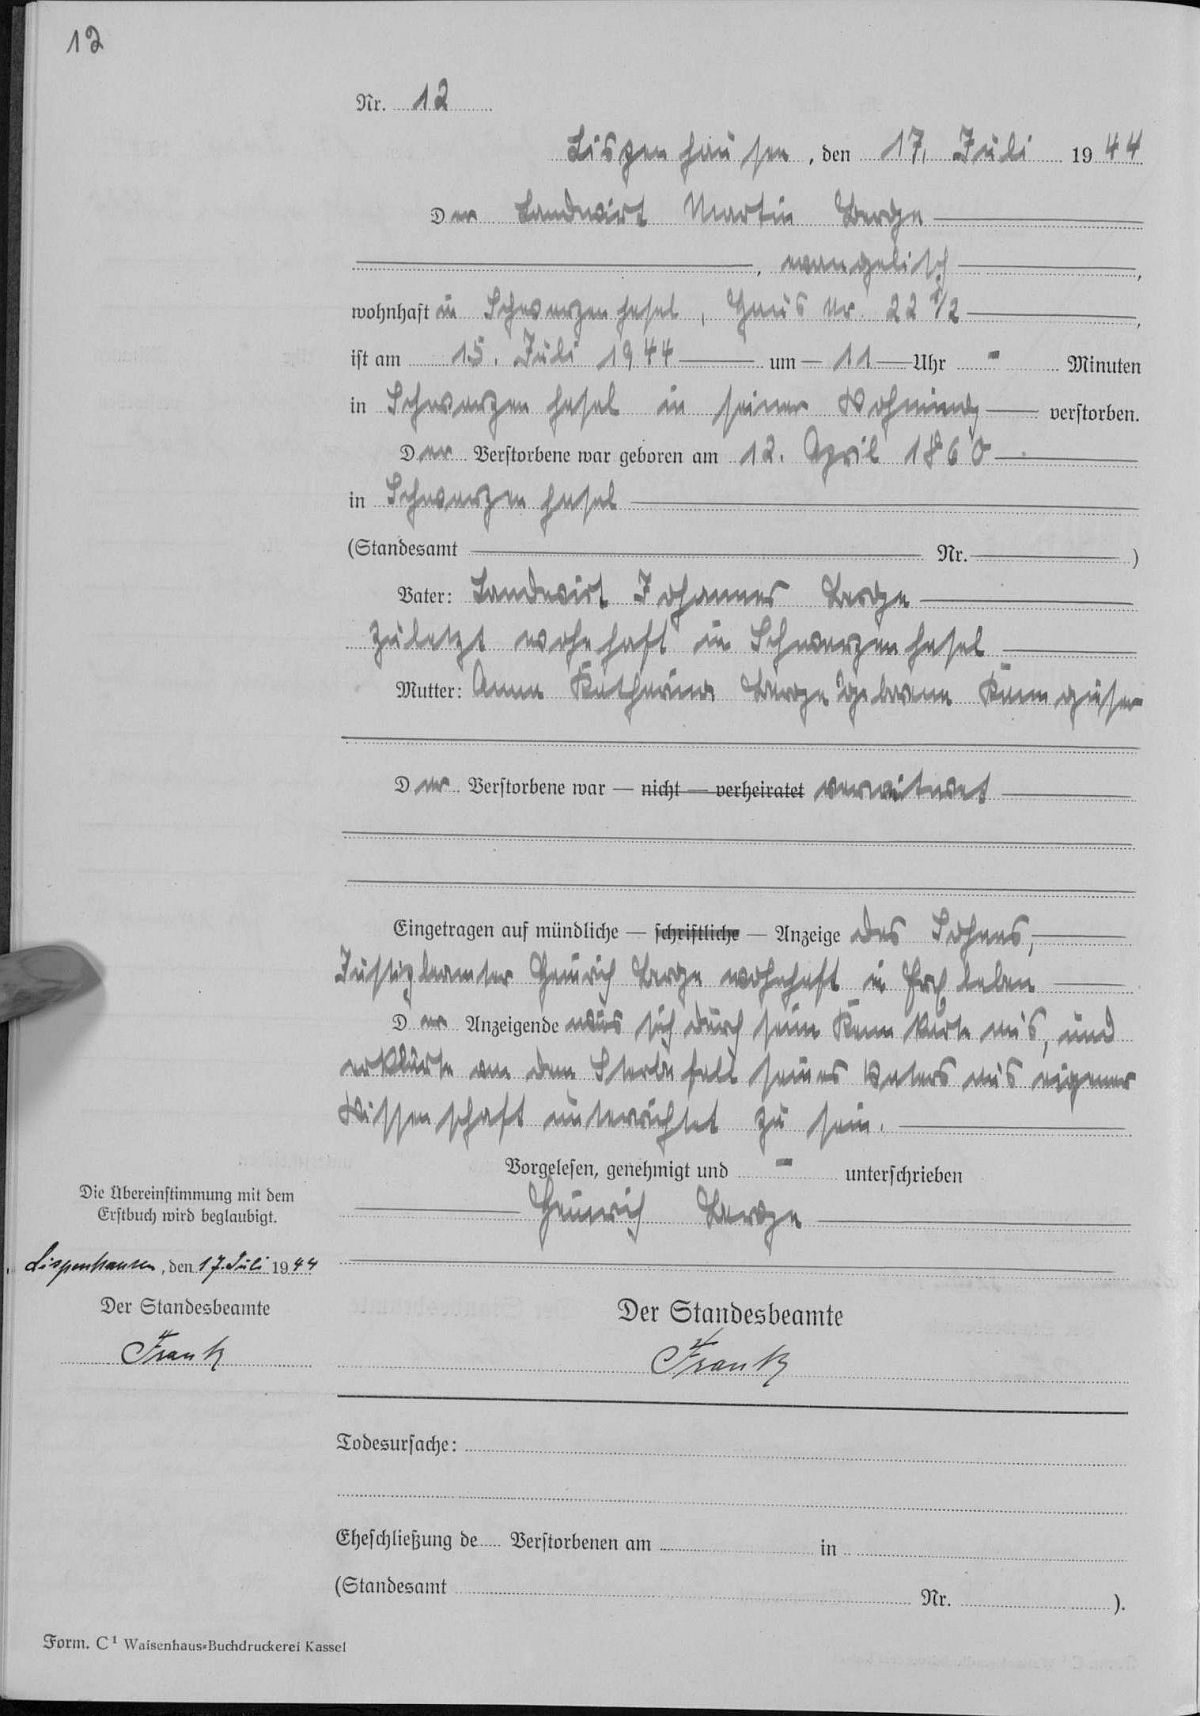 12
Nr. 12
Lispenhausen, den 17. Juli 1944
Der Landwirt Martin Berge
, evangelisch,
wohnhaft in Schwarzenhasel, Haus Nr. 22 1/2,
ist am 15. Juli 1944 um 11 Uhr - Minuten
in Schwarzenhasel in seiner Wohnung verstorben.
Der Verstorbene war geboren am 12. April 1860
in Schwarzenhasel
(Standesamt Nr. )
Vater: Landwirt Johannes Berge
zuletzt wohnhaft in Schwarzenhasel
Mutter: Anna Katharina Berge geborene
Der Verstorbene war — nicht — verheiratet verwitwet
Eingetragen auf mündliche — schriftliche — Anzeige des Sohnes,
Justizbeamter Heinrich Berge wohnhaft in
Der Anzeigende wies sich durch seine Kennkarte aus, und
erklärte von dem Sterbefall seines Vaters aus eigener
Wissenschaft unterrichtet zu sein.
Vorgelesen, genehmigt und - unterschrieben
Heinrich Berge
Die Übereinstimmung mit dem
Erstbuch wird beglaubigt.
Lispenhausen, den 17. Juli 1944
Der Standesbeamte
Frank
Der Standesbeamte
Frank
Todesursache:
Eheschließung de Verstorbenen am in
(Standesamt Nr. ).
Form. C1 Waisenhaus-Buchdruckerei Kassel